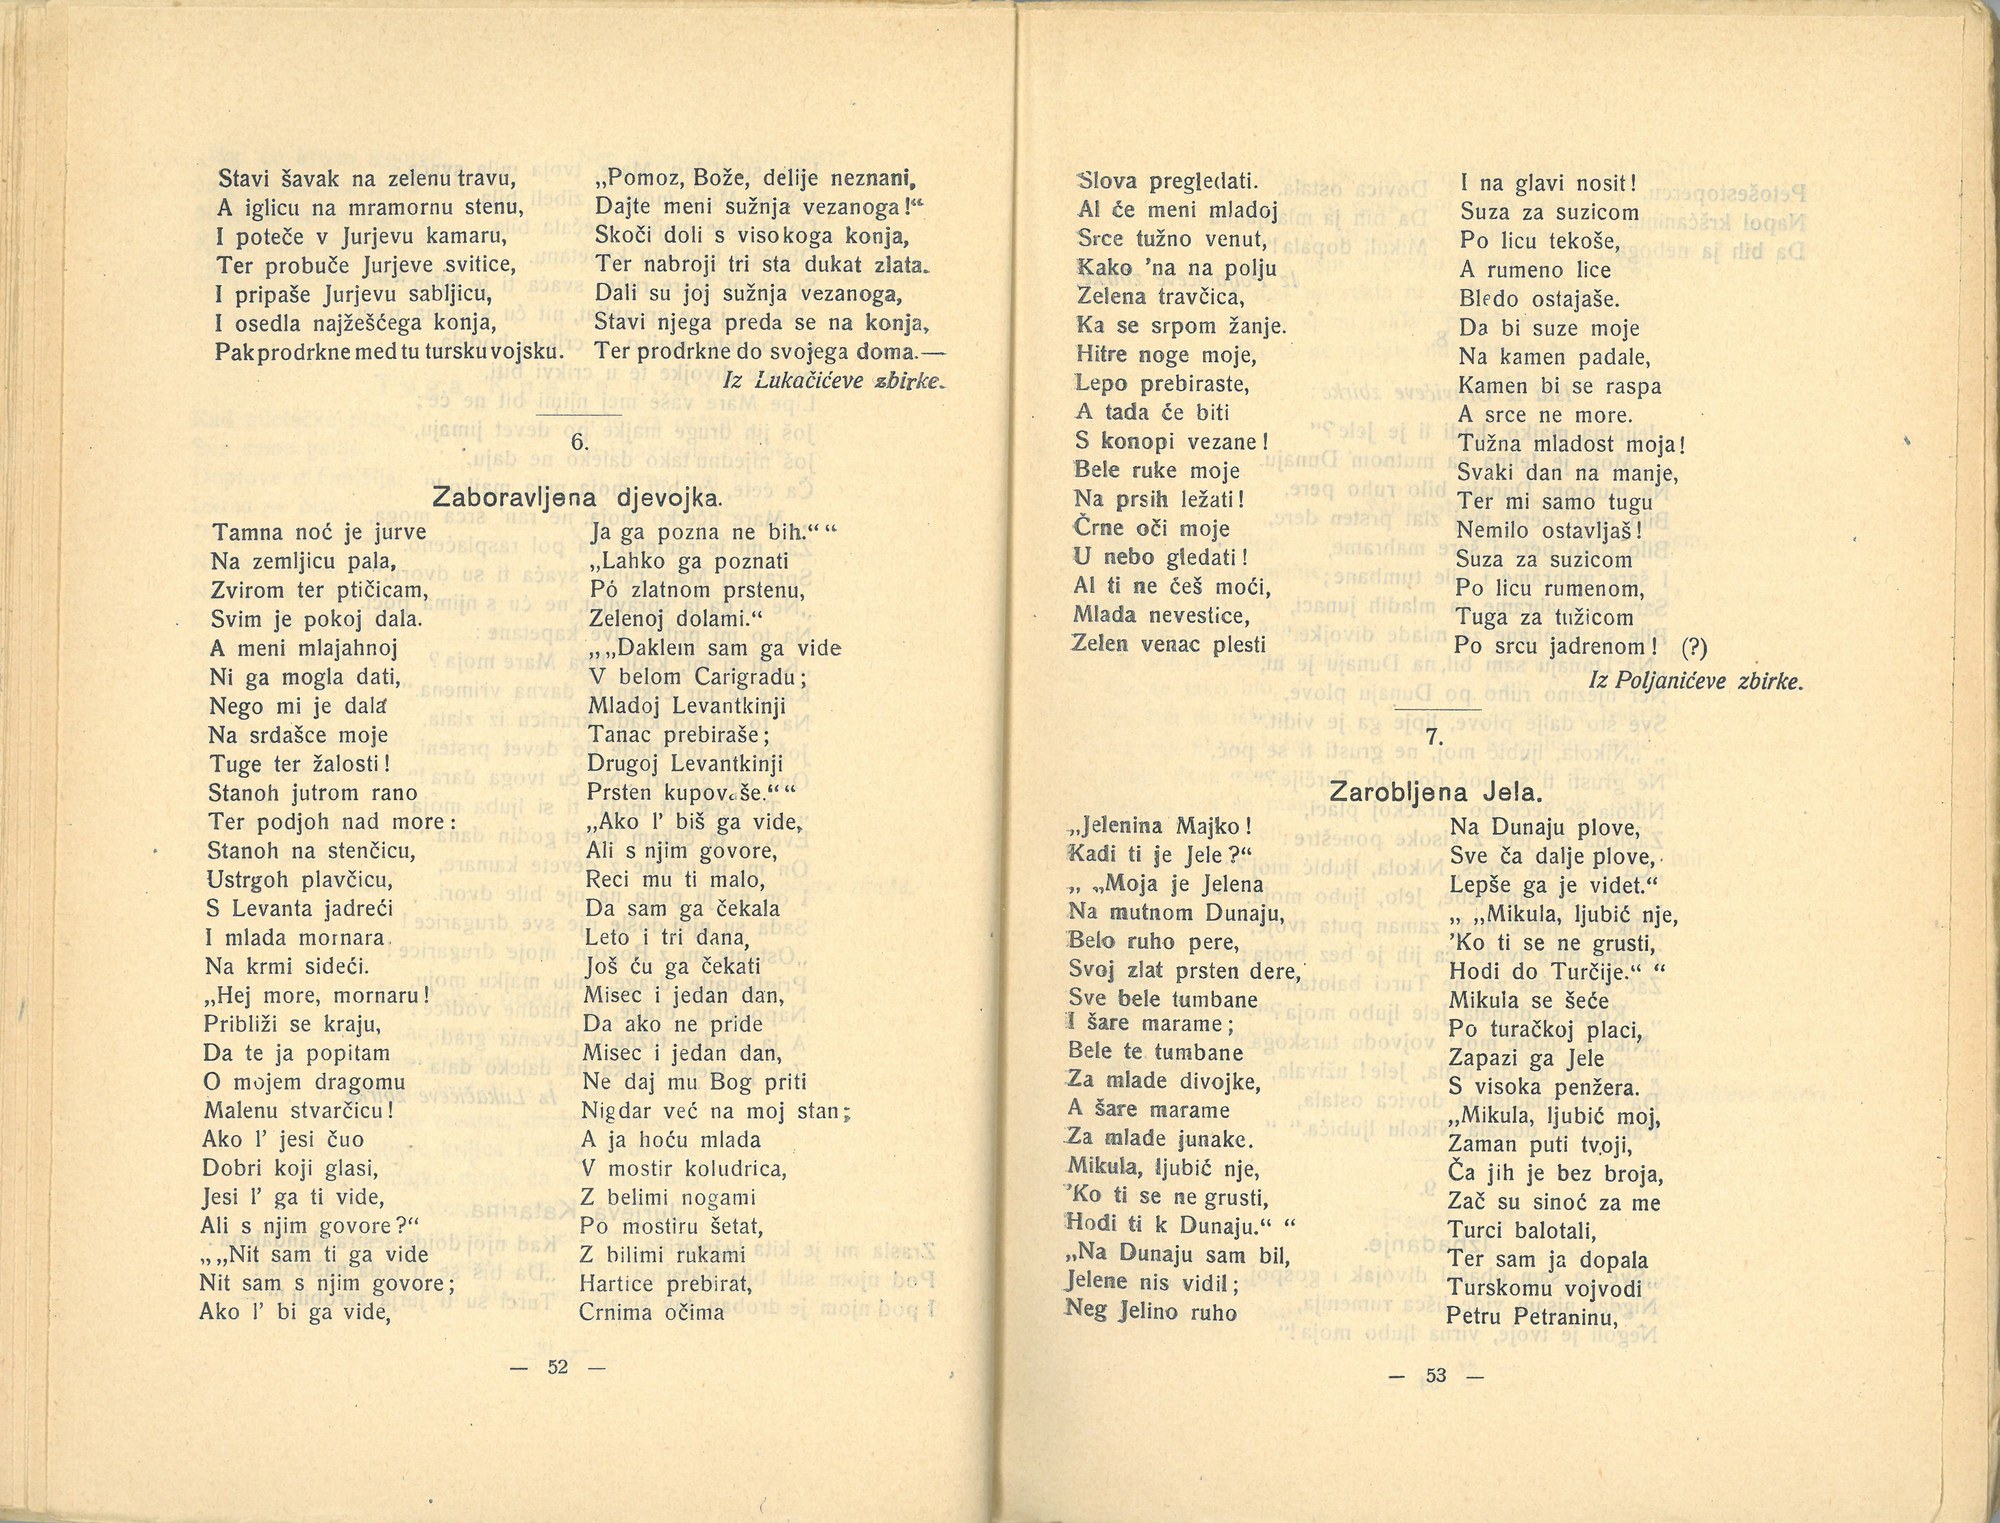 Stavi šavak na zelenu travu,
A iglicu na mramornu stenu,
I poteče v Jurjevu kamaru,
Ter probuče Jurjeve svitice,
I pripaše Jurjevu sabljicu,
I osedla najžešćega konja,
Pak prodrkne med tu tursku vojsku.
„Pomoz, Bože, delije neznani,
Dajte meni sužnja vezanoga!“
Skoči doli s visokoga konja,
Ter nabroji tri sta dukat zlata.
Dali su joj sužnja vezanoga,
Stavi njega preda se na konja,
Ter prodrkne do svojega doma.—
Iz Lukačićeve zbirke.
6.
Zaboravljena djevojka.
Tamna noć je jurve
Na zemljicu pala,
Zvirom ter ptičicam,
Svim je pokoj dala.
A meni mlajahnoj
Ni ga mogla dati,
Nego mi je dala
Na srdašce moje
Tuge ter žalosti!
Stanoh jutrom rano
Ter podjoh nad more:
Stanoh na stenčicu,
Ustrgoh plavčicu,
S Levanta jadreći
I mlada mornara
Na krmi sideći.
„Hej more, mornaru!
Približi se kraju,
Da te ja popitam
O mojem dragomu
Malenu stvarčicu!
Ako l’ jesi čuo
Dobri koji glasi,
Jesi l’ ga ti vide,
Ali s njim govore?“
„„Nit sam ti ga vide
Nit sam s njim govore;
Ako l’ bi ga vide,
Ja ga pozna ne bih.““
„Lahko ga poznati
Po zlatnom prstenu,
Zelenoj dolami.“
„„Daklem sam ga vide
V belom Carigradu;
Mladoj Levantkinji
Tanac prebiraše;
Drugoj Levantkinji
Prsten kupovaše.““
„Ako l’ biš ga vide,
Ali s njim govore,
Reci mu ti malo,
Da sam ga čekala
Leto i tri dana,
Još ću ga čekati
Misec i jedan dan,
Da ako ne pride
Misec i jedan dan,
Ne daj mu Bog priti
Nigdar već na moj stan;
A ja hoću mlada
V mostir koludrica,
Z belimi nogami
Po mostiru šetat,
Z bilimi rukami
Hartice prebirat,
Crnima očima
— 52 —
Slova pregledati.
Al će meni mladoj
Srce tužno venut,
Kako ’na na polju
Zelena travčica,
Ka se srpom žanje.
Hitre noge moje,
Lepo prebiraste,
A tada će biti
S konopi vezane!
Bele ruke moje
Na prsih ležati!
Črne oči moje
U nebo gledati!
Al ti ne ćeš moći,
Mlada nevestice,
Zelen venac plesti
I na glavi nosit!
Suza za suzicom
Po licu tekoše,
A rumeno lice
Bledo ostajaše.
Da bi suze moje
Na kamen padale,
Kamen bi se raspa
A srce ne more.
Tužna mladost moja!
Svaki dan na manje,
Ter mi samo tugu
Nemilo ostavljaš!
Suza za suzicom
Po licu rumenom,
Tuga za tužicom
Po srcu jadrenom! (?)
Iz Poljanićeve zbirke.
7.
Zarobljena Jela.
„Jelenina Majko!
Kadi ti je Jele?“
„ „Moja je Jelena
Na mutnom Dunaju,
Belo ruho pere,
Svoj zlat prsten dere,
Sve bele tumbane
I šare marame;
Bele te tumbane
Za mlade divojke,
A šare marame
Za mlade junake.
Mikula, ljubić nje,
’Ko ti se ne grusti,
Hodi ti k Dunaju.“ “
„Na Dunaju sam bil,
Jelene nis vidil;
Neg Jelino ruho
Na Dunaju plove,
Sve ča dalje plove,
Lepše ga je videt.“
„ „Mikula, ljubić nje,
’Ko ti se ne grusti,
Hodi do Turčije.“ “
Mikula se šeće
Po turačkoj placi,
Zapazi ga Jele
S visoka penžera.
„Mikula, ljubić moj,
Zaman puti tvoji,
Ča jih je bez broja,
Zač su sinoć za me
Turci balotali,
Ter sam ja dopala
Turskomu vojvodi
Petru Petraninu,
— 53 —